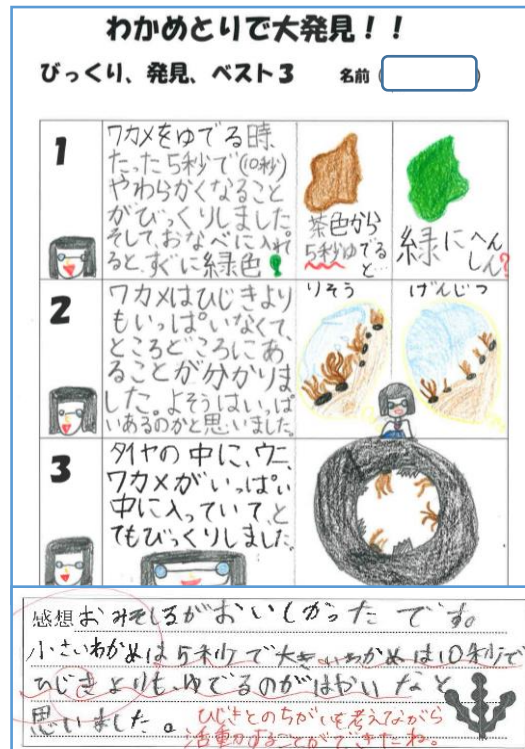 わかめとりで大発見！！
びっくり、発見、ベスト3　名前（　）
1
ワカメをゆでる時、
たった5秒で(10秒)
やわらかくなること
がびっくりしました。
そして、おなべに入れ
ると、すぐに緑色!
茶色から
5秒ゆでる
と…
緑にへん
しん?
2
ワカメはひじきより
もいっぱいなくて、
ところどころにあ
ることが分かりま
した。よそうはいっぱ
いあるのかと思いました。
りそう
げんじつ
3
タイヤの中に、ウニ、
ワカメがいっぱい
中に入っていて、と
てもびっくりしました。
感想おみそしるがおいしかったです。
小さいわかめは5秒で大きいわかめは10秒で
ひじきよりも、ゆでるのがはやいなと
思いました。
ひじきとのちがいを考えながら
活動することができたね。